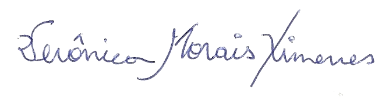 Verônica Morais Ximenes